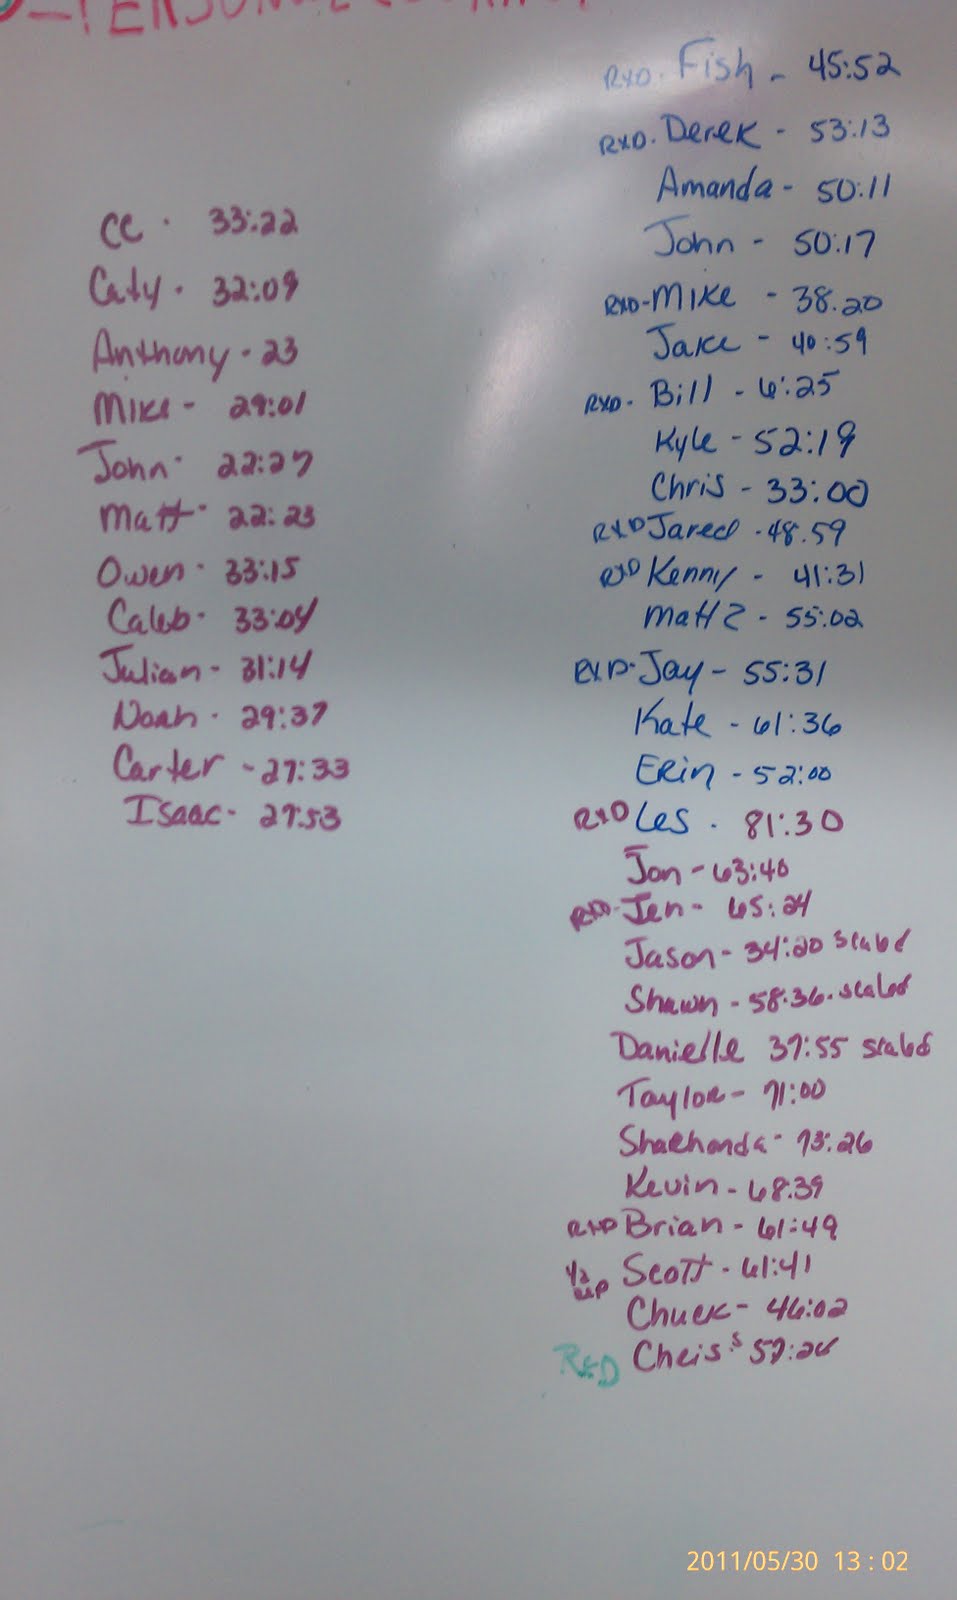 CC - 33:22
Caty - 32:09
Anthony - 23
Mike - 29:01
John - 22:27
Matt - 22:23
Owen - 33:15
Caleb - 33:04
Julian - 31:14
Noah - 29:37
Carter - 27:33
Isaac - 27:53
RXD. Fish - 45:52
RXD. Derek - 53:13
Amanda - 50:11
John - 50:17
RXD - Mike - 38.20
Jake - 40:59
RXD. Bill - 6:25
Kyle - 52:19
Chris - 33:00
RXD Jared - 48.59
RXD Kenny - 41:31
Matt Z - 55:02
RXD. Jay - 55:31
Kate - 61:36
Erin - 52:00
RXD Les . 81:30
Jon - 63:40
RXD - Jen - 65:24
Jason - 34:20 scaled
Shawn - 58:36. scaled
Danielle 37:55 scaled
Taylor - 71:00
73:26
Kevin - 68:39
RXD Brian - 61:49
1/2 Scott - 61:41
Chuck - 46:02
RXD Chris S
2011/05/30 13:02